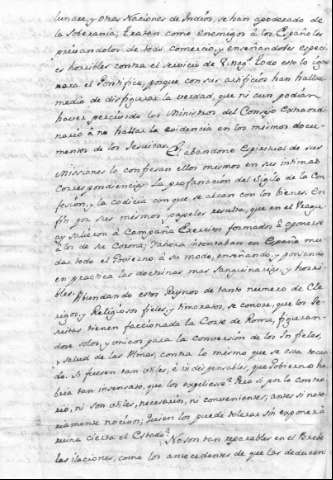 y otras Naciones de Indios, se han apoderado de
la Soberania, tratan como enemigos à los Españoles
privandolos de todo comercio, y enseñandoles especi-
es horribles contra el servicio de S. Mag.d Todo esto lo igno-
rara el Pontifice, porque con sus artificios han hallado
medio de disfigurar la verdad, que ni aun podian
haver percivido los Ministros del Consejo Extraordi-
nario à no hallar la evidencia en los mismos docu-
mentos de los Jesuitas. El abandono espiritual de sus
Missiones lo confiesan ellos mismos en sus intimas
Correspondencias. La profanacion del Sigilo de la Con-
fesion, y la codicia con que se alzan con los bienes. En
fin por sus mismos papeles resulta, que en el Paragu-
ay salieron à Campaña Exercitos formados à oponerse
à los de su Corona; y ahora intentaban en España mu-
dar todo el Govierno à su modo, enseñando, y poniendo
en practica las doctrinas mas sanguinarias, y horri-
bles. Abundando estos Reynos de tanto numero de Cle-
rigos, y Religiosos fieles, y timoratos, se conoce, que los Je-
suitas tienen faccionada la Corte de Roma, figuran-
dose solos, y unicos para la conversion de los Infieles,
y salud de las Almas, contra lo mismo que se esta tocan-
do. Si fuesen tan utiles, è indispensables, que Govierno ha-
bria tan insensato, que los expeliese? Pero si por lo contra-
rio, ni son utiles, necesarios, ni convenientes; antes si noto-
riamente nocivos; quien los puede tolerar sin exponerse à
ruina cierta el Estado? No son tan reparables en el Breve
las ilaciones, como los antecedentes de que las deducen